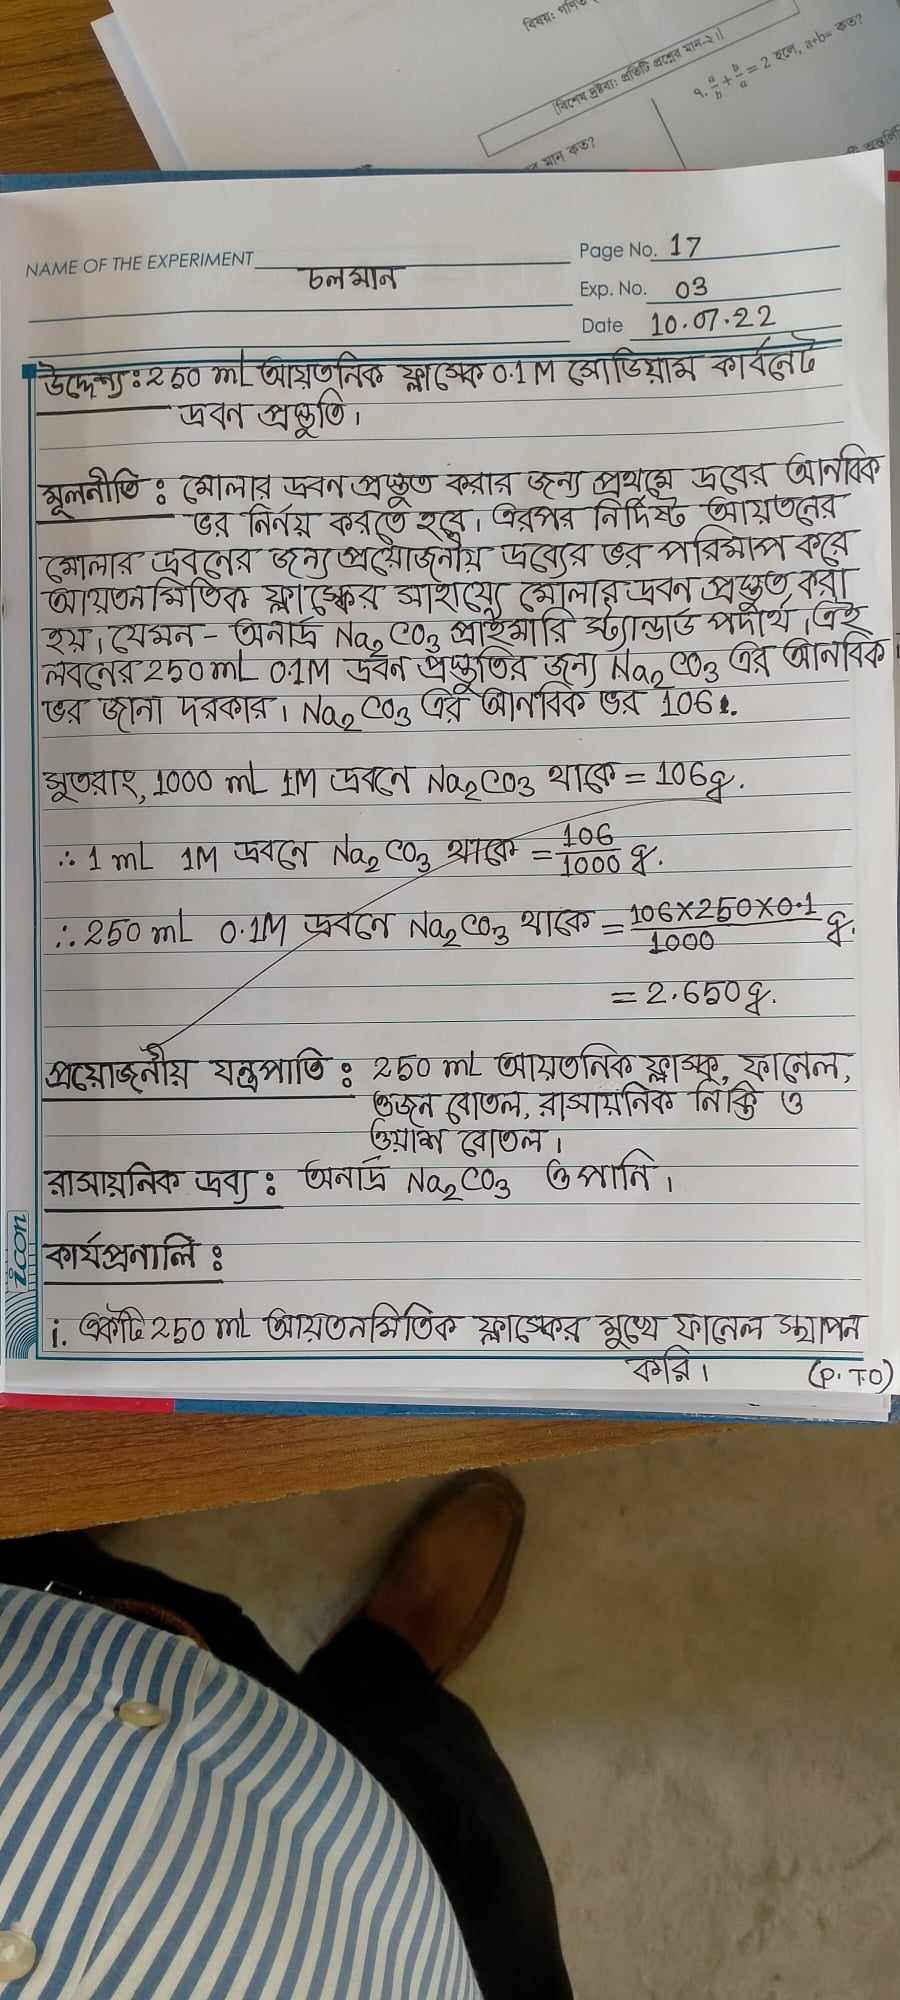 বিষয়: গণিত
[বিশেষ দ্রষ্টব্য: প্রতিটি প্রশ্নের মান-২।]
৭. a/b + b/a = 2 হলে, a+b= কত?
মান কত?
NAME OF THE EXPERIMENT চলমান
Page No. 17
Exp. No. 03
Date 10.07.22
উদ্দেশ্য: 250 mL আয়তনিক ফ্লাস্কে 0.1M সোডিয়াম কার্বনেট
দ্রবন প্রস্তুতি।
মূলনীতি: মোলার দ্রবন প্রস্তুত করার জন্য প্রথমে দ্রবের আনবিক
ভর নির্নয় করতে হবে। এরপর নির্দিষ্ট আয়তনের
মোলার দ্রবনের জন্য প্রয়োজনীয় দ্রব্যের ভর পরিমাপ করে
আয়তনমিতিক ফ্লাস্কের সাহায্যে মোলার দ্রবন প্রস্তুত করা
হয়। যেমন- অনার্দ্র Na₂CO₃ প্রাইমারি স্ট্যান্ডার্ড পদার্থ। এই
লবনের 250mL 0.1M দ্রবন প্রস্তুতির জন্য Na₂CO₃ এর আনবিক
ভর জানা দরকার। Na₂CO₃ এর আনবিক ভর 106.
সুতরাং, 1000 mL 1M দ্রবনে Na₂CO₃ থাকে = 106g.
∴ 1 mL 1M দ্রবনে Na₂CO₃ থাকে = 106/1000 g.
∴ 250 mL 0.1M দ্রবনে Na₂CO₃ থাকে = 106×250×0.1/1000 g.
= 2.650g.
প্রয়োজনীয় যন্ত্রপাতি: 250 mL আয়তনিক ফ্লাস্ক, ফানেল,
ওজন বোতল, রাসায়নিক নিক্তি ও
ওয়াশ বোতল।
রাসায়নিক দ্রব্য: অনার্দ্র Na₂CO₃ ও পানি।
কার্যপ্রনালি:
i. একটি 250 mL আয়তনমিতিক ফ্লাস্কের মুখে ফানেল স্থাপন
করি।
(P.T.O)
icon